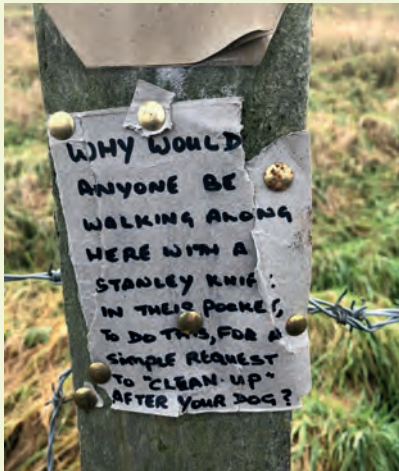 WHY WOULD
ANYONE BE
WALKING ALONG
HERE WITH A
STANLEY KNIF:
IN THEIR POCKET,
TO DO THIS, FOR A
SIMPLE REQUEST
TO "CLEAN-UP"
AFTER YOUR DOG?